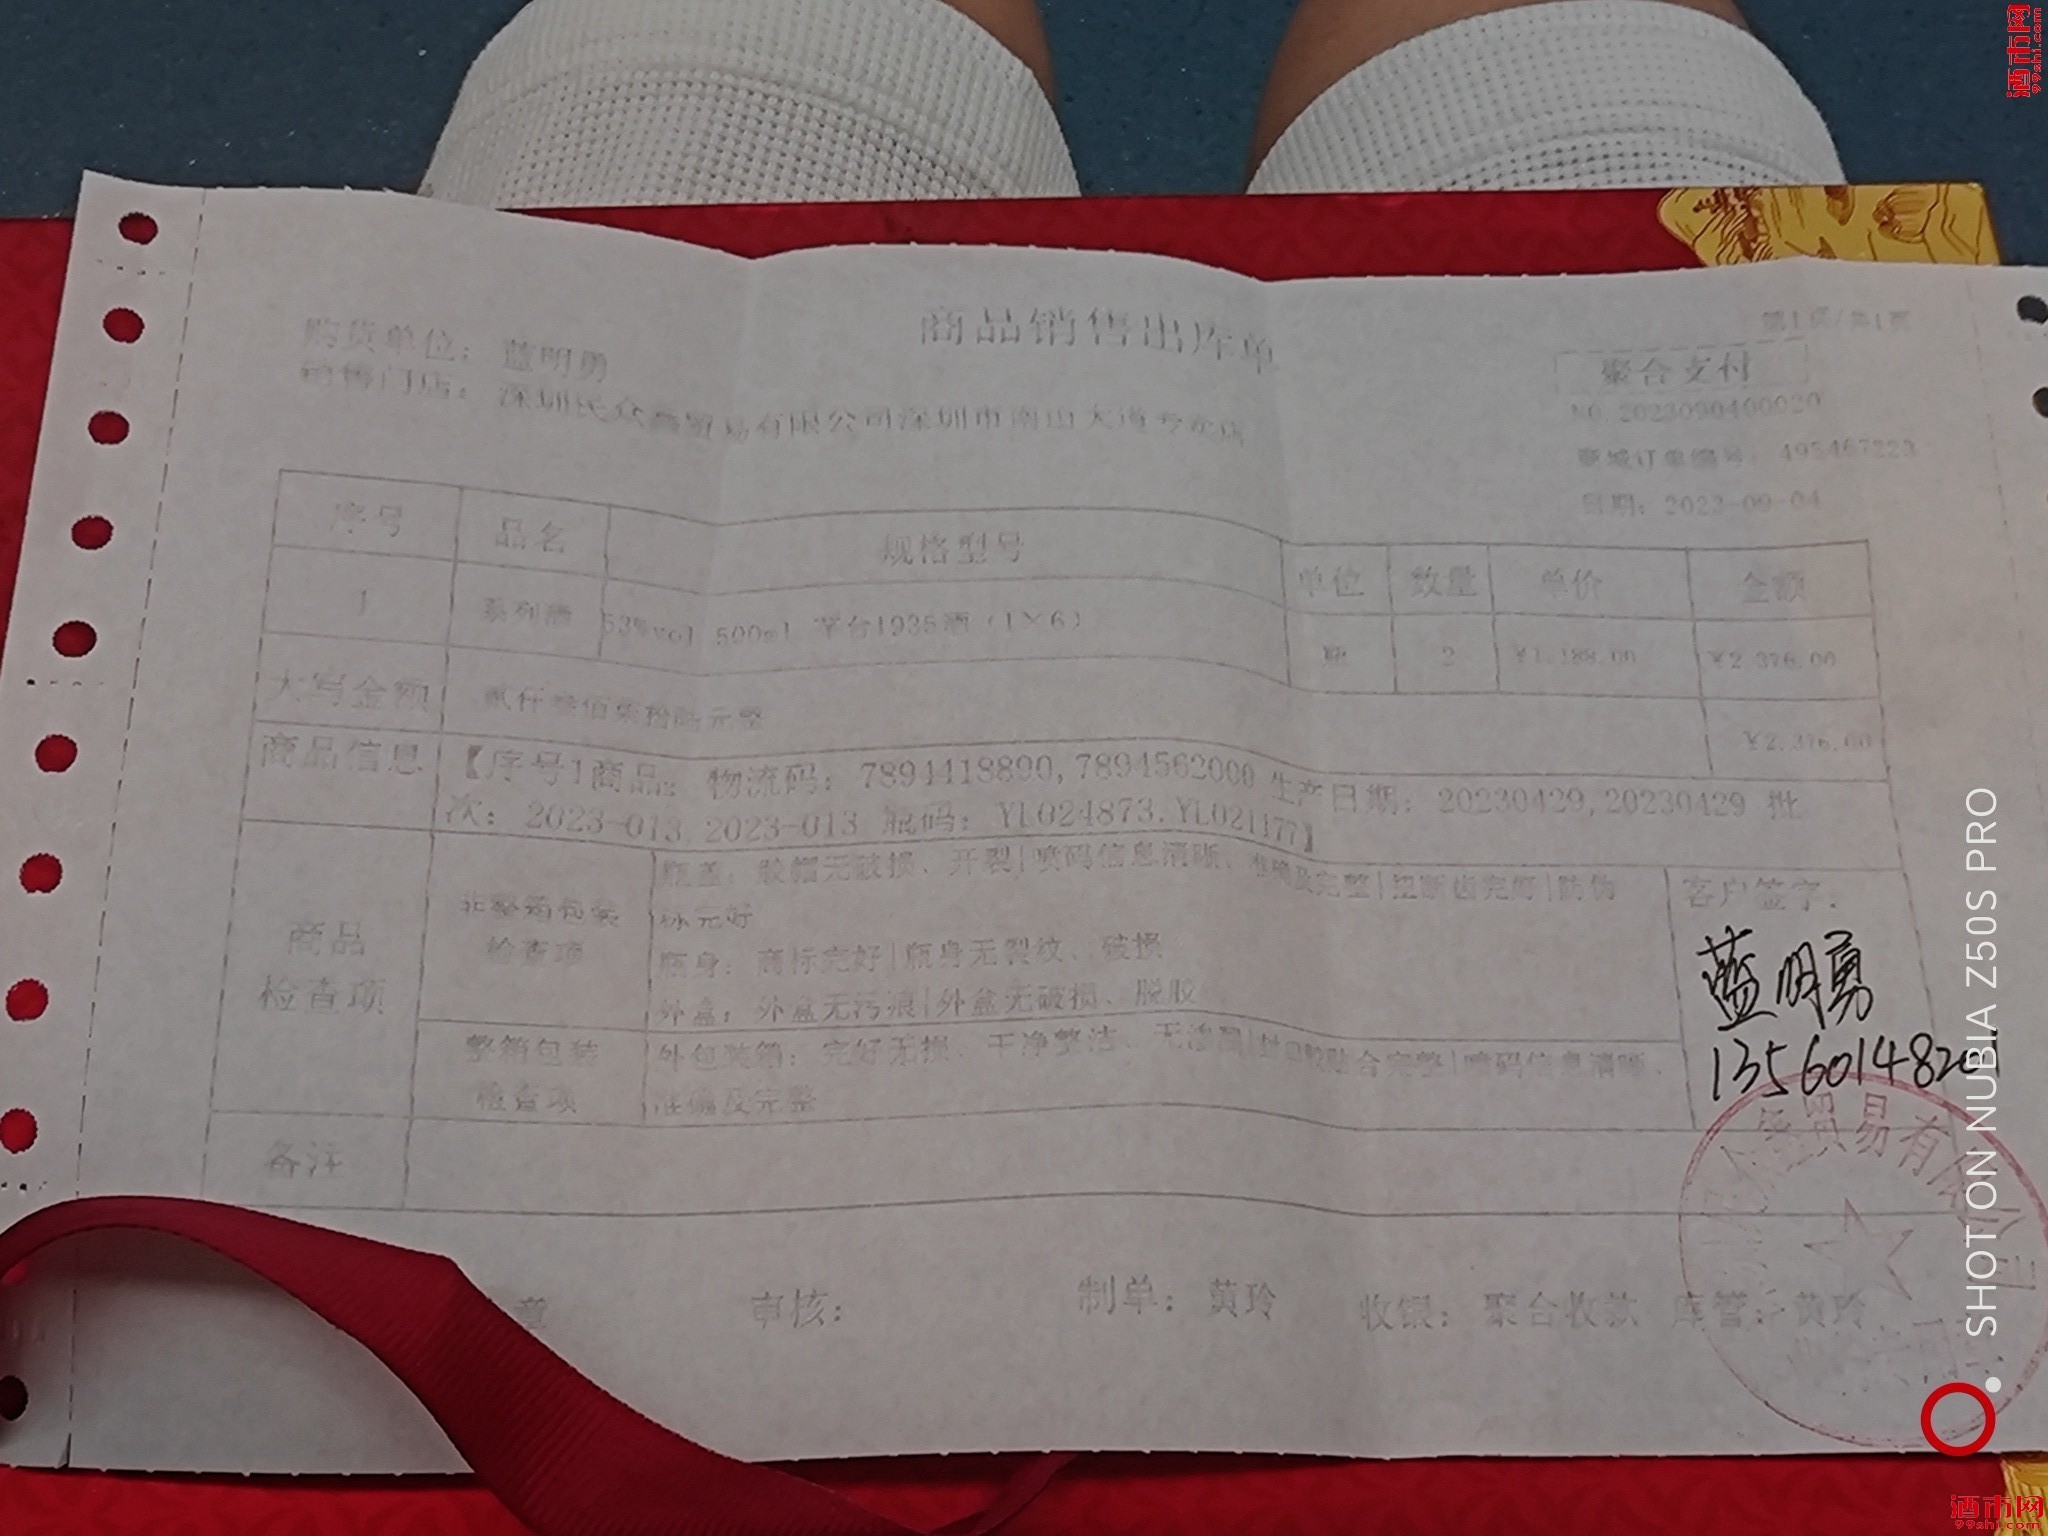 酒市网
99shi.com
商品销售出库单
第1页/共1页
购货单位：蓝明勇
聚合支付
销售门店：深圳民众鑫贸易有限公司深圳市南山大道专卖店
NO.2023090400020
商城订单编号：495467223
日期：2023-09-04
序号 品名 规格型号 单位 数量 单价 金额
1 系列酒 53%vol 500ml 茅台1935酒（1×6） 瓶 2 ¥1,188.00 ¥2,376.00
大写金额 贰仟叁佰柒拾陆元整 ¥2,376.00
商品信息 【序号1商品：物流码：7894118890,7894562000 生产日期：20230429,20230429 批
次：2023-013,2023-013 瓶码：YL024873,YL021177】
商品
检查项
非整箱包装
检查项
瓶盖：胶帽无破损、开裂|喷码信息清晰、准确及完整|扭断齿完好|防伪
标完好
瓶身：商标完好|瓶身无裂纹、破损
外盒：外盒无污痕|外盒无破损、脱胶
整箱包装
检查项
外包装箱：完好无损、干净整洁、无渗漏|封口胶贴合完整|喷码信息清晰、
准确及完整
客户签字：
蓝明勇
13560148201
备注
章 审核： 制单：黄玲 收银：聚合收款 库管：黄玲
众鑫贸易有限公司
SHOT ON NUBIA Z50S PRO
酒市网
99shi.com